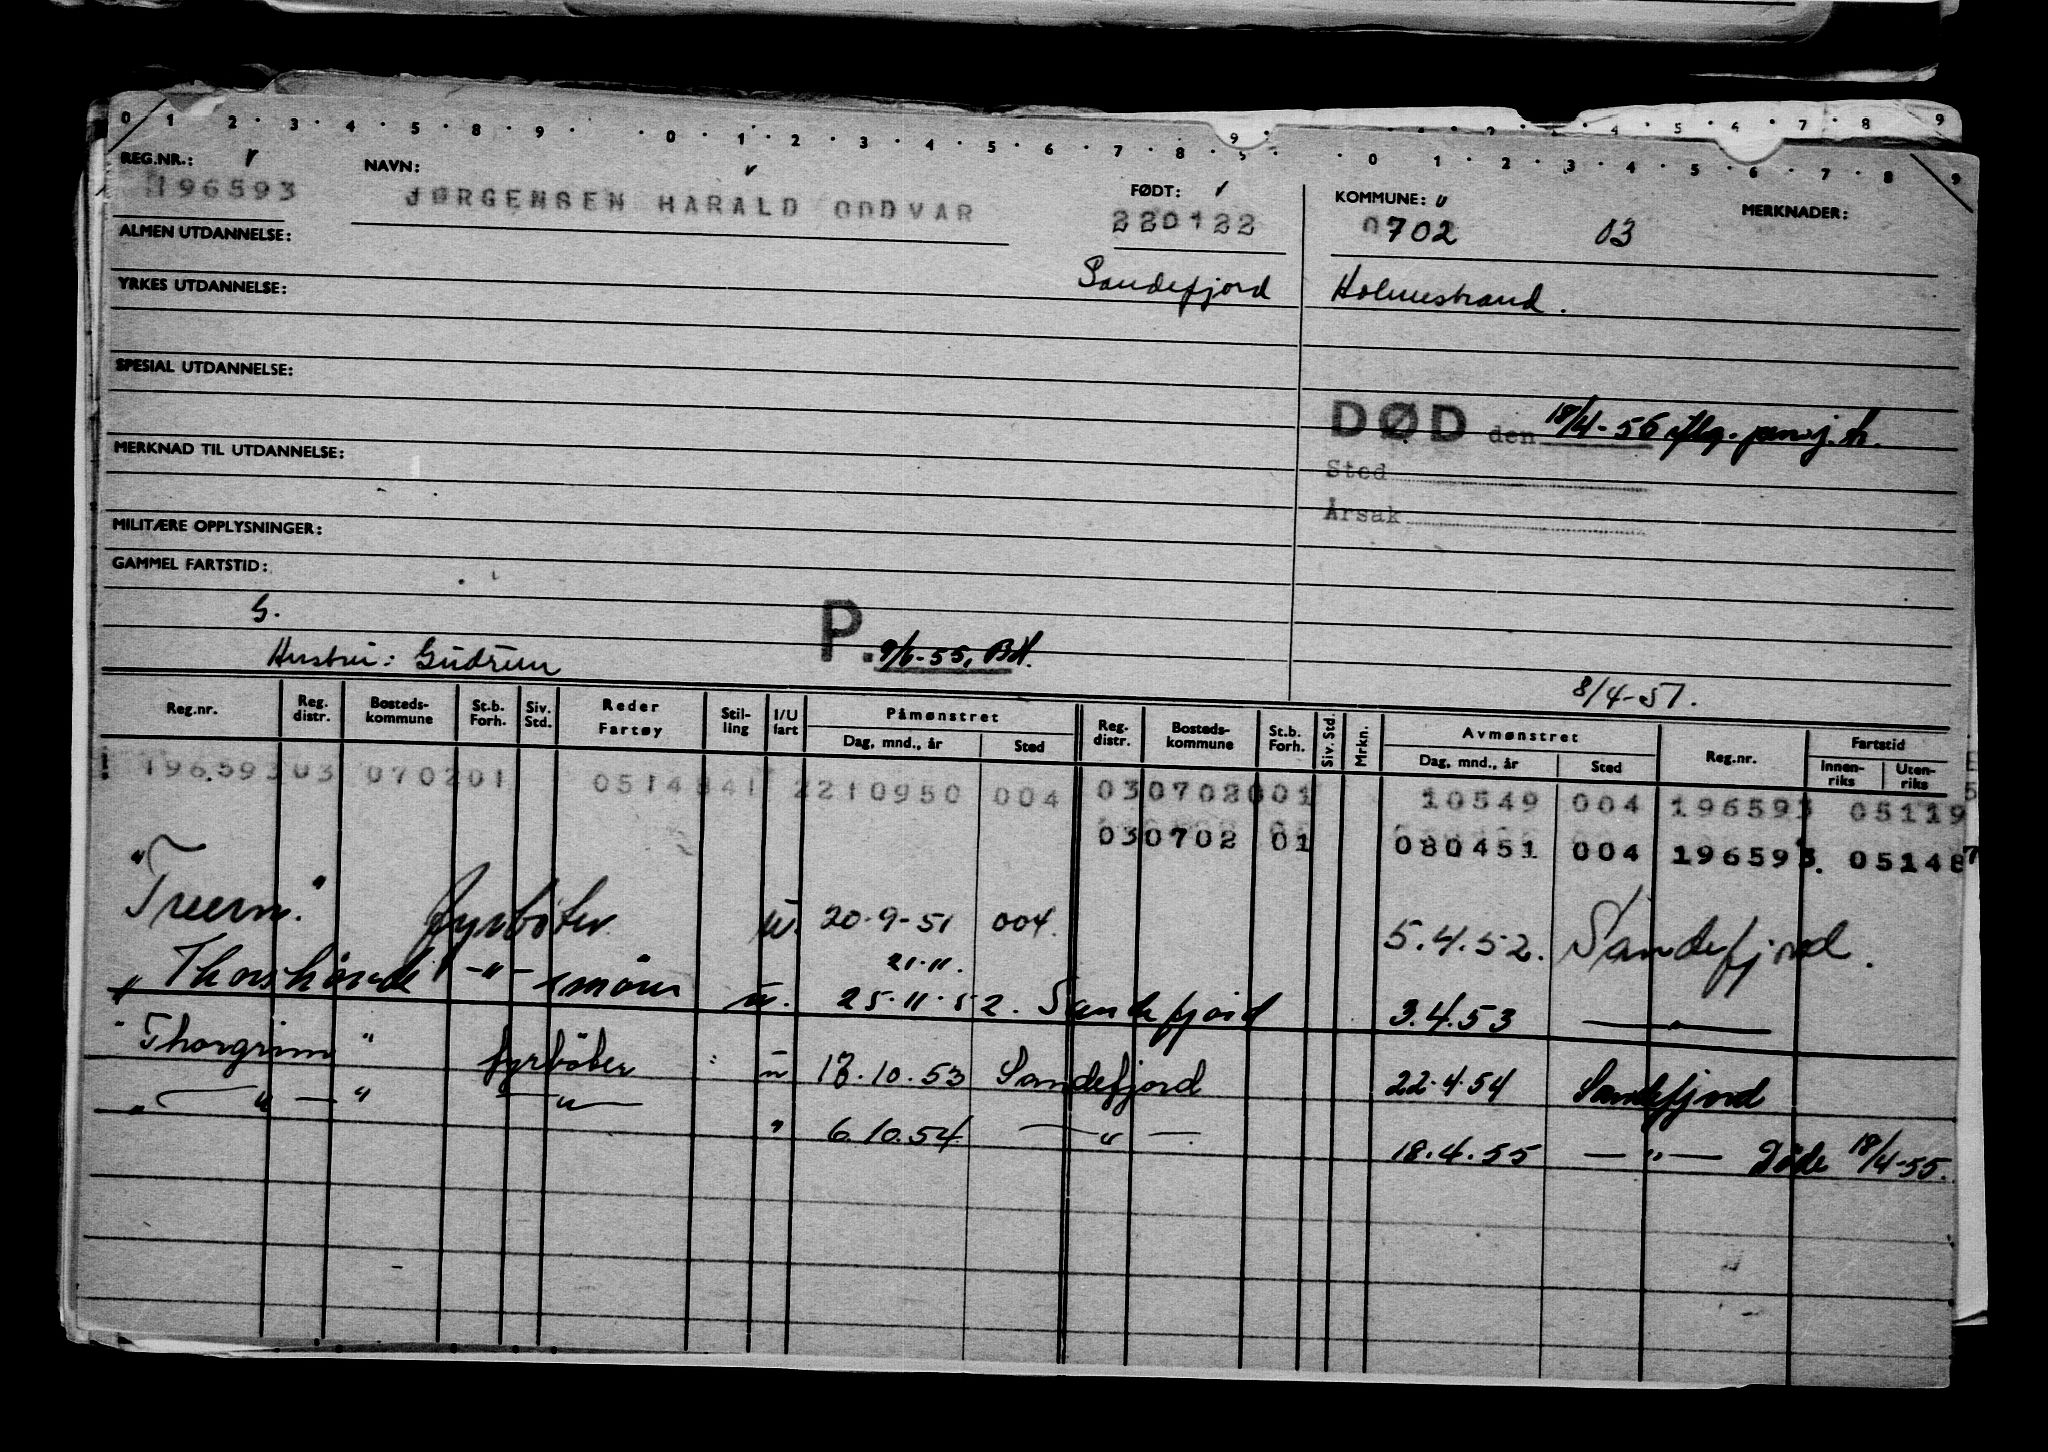 0 1 2 · 3 · 4 · 5 · 8 · 9 · · 0 · 1 · 2 · 3 · 4 · 5 · 6 · 7 · 8 · 9 · · 0 · 1 · 2 · 3 · 4 · 5 · 6 · 7 · 8 9
REG.NR.: NAVN: FØDT: KOMMUNE: MERKNADER:
196593 JØRGENSEN HARALD ODDVAR 220122 0702 03
ALMEN UTDANNELSE:
YRKES UTDANNELSE: Sandefjord Holmestrand.
SPESIAL UTDANNELSE:
DØD den 18/4-56 iflg.
MERKNAD TIL UTDANNELSE: Sted
Årsak
MILITÆRE OPPLYSNINGER:
GAMMEL FARTSTID:
G.
Hustru: Gudrun P. 9/6-55, BH.
8/4-51.
Reg.nr. Reg. distr. Bosteds-kommune St.b. Forh. Siv. Std. Reder Fartøy Stil-ling I/U fart Påmønstret Dag, mnd., år Sted Reg. distr. Bosteds-kommune St.b. Forh. Siv. Std. Mrkn. Avmønstret Dag, mnd., år Sted Reg.nr. Fartstid Innen-riks Uten-riks
196593 03 0702 01 0514841 2210950 004 03 0702001 10549 004 196593 05119
03 0702 01 080451 004 196593. 05148 7
"Truern." fyrbøter u. 20-9-51 004. 5.4.52. Sandefjord.
21.11.
"Thorshövdi" -"- smører u. 25.11.52. Sandefjord 3.4.53 — " —
"Thorgrim" fyrbøter u 13.10.53 Sandefjord 22.4.54 Sandefjord
" — " — " — " — " 6.10.54 — " — 18.4.55 — " — Døde 18/4-55.